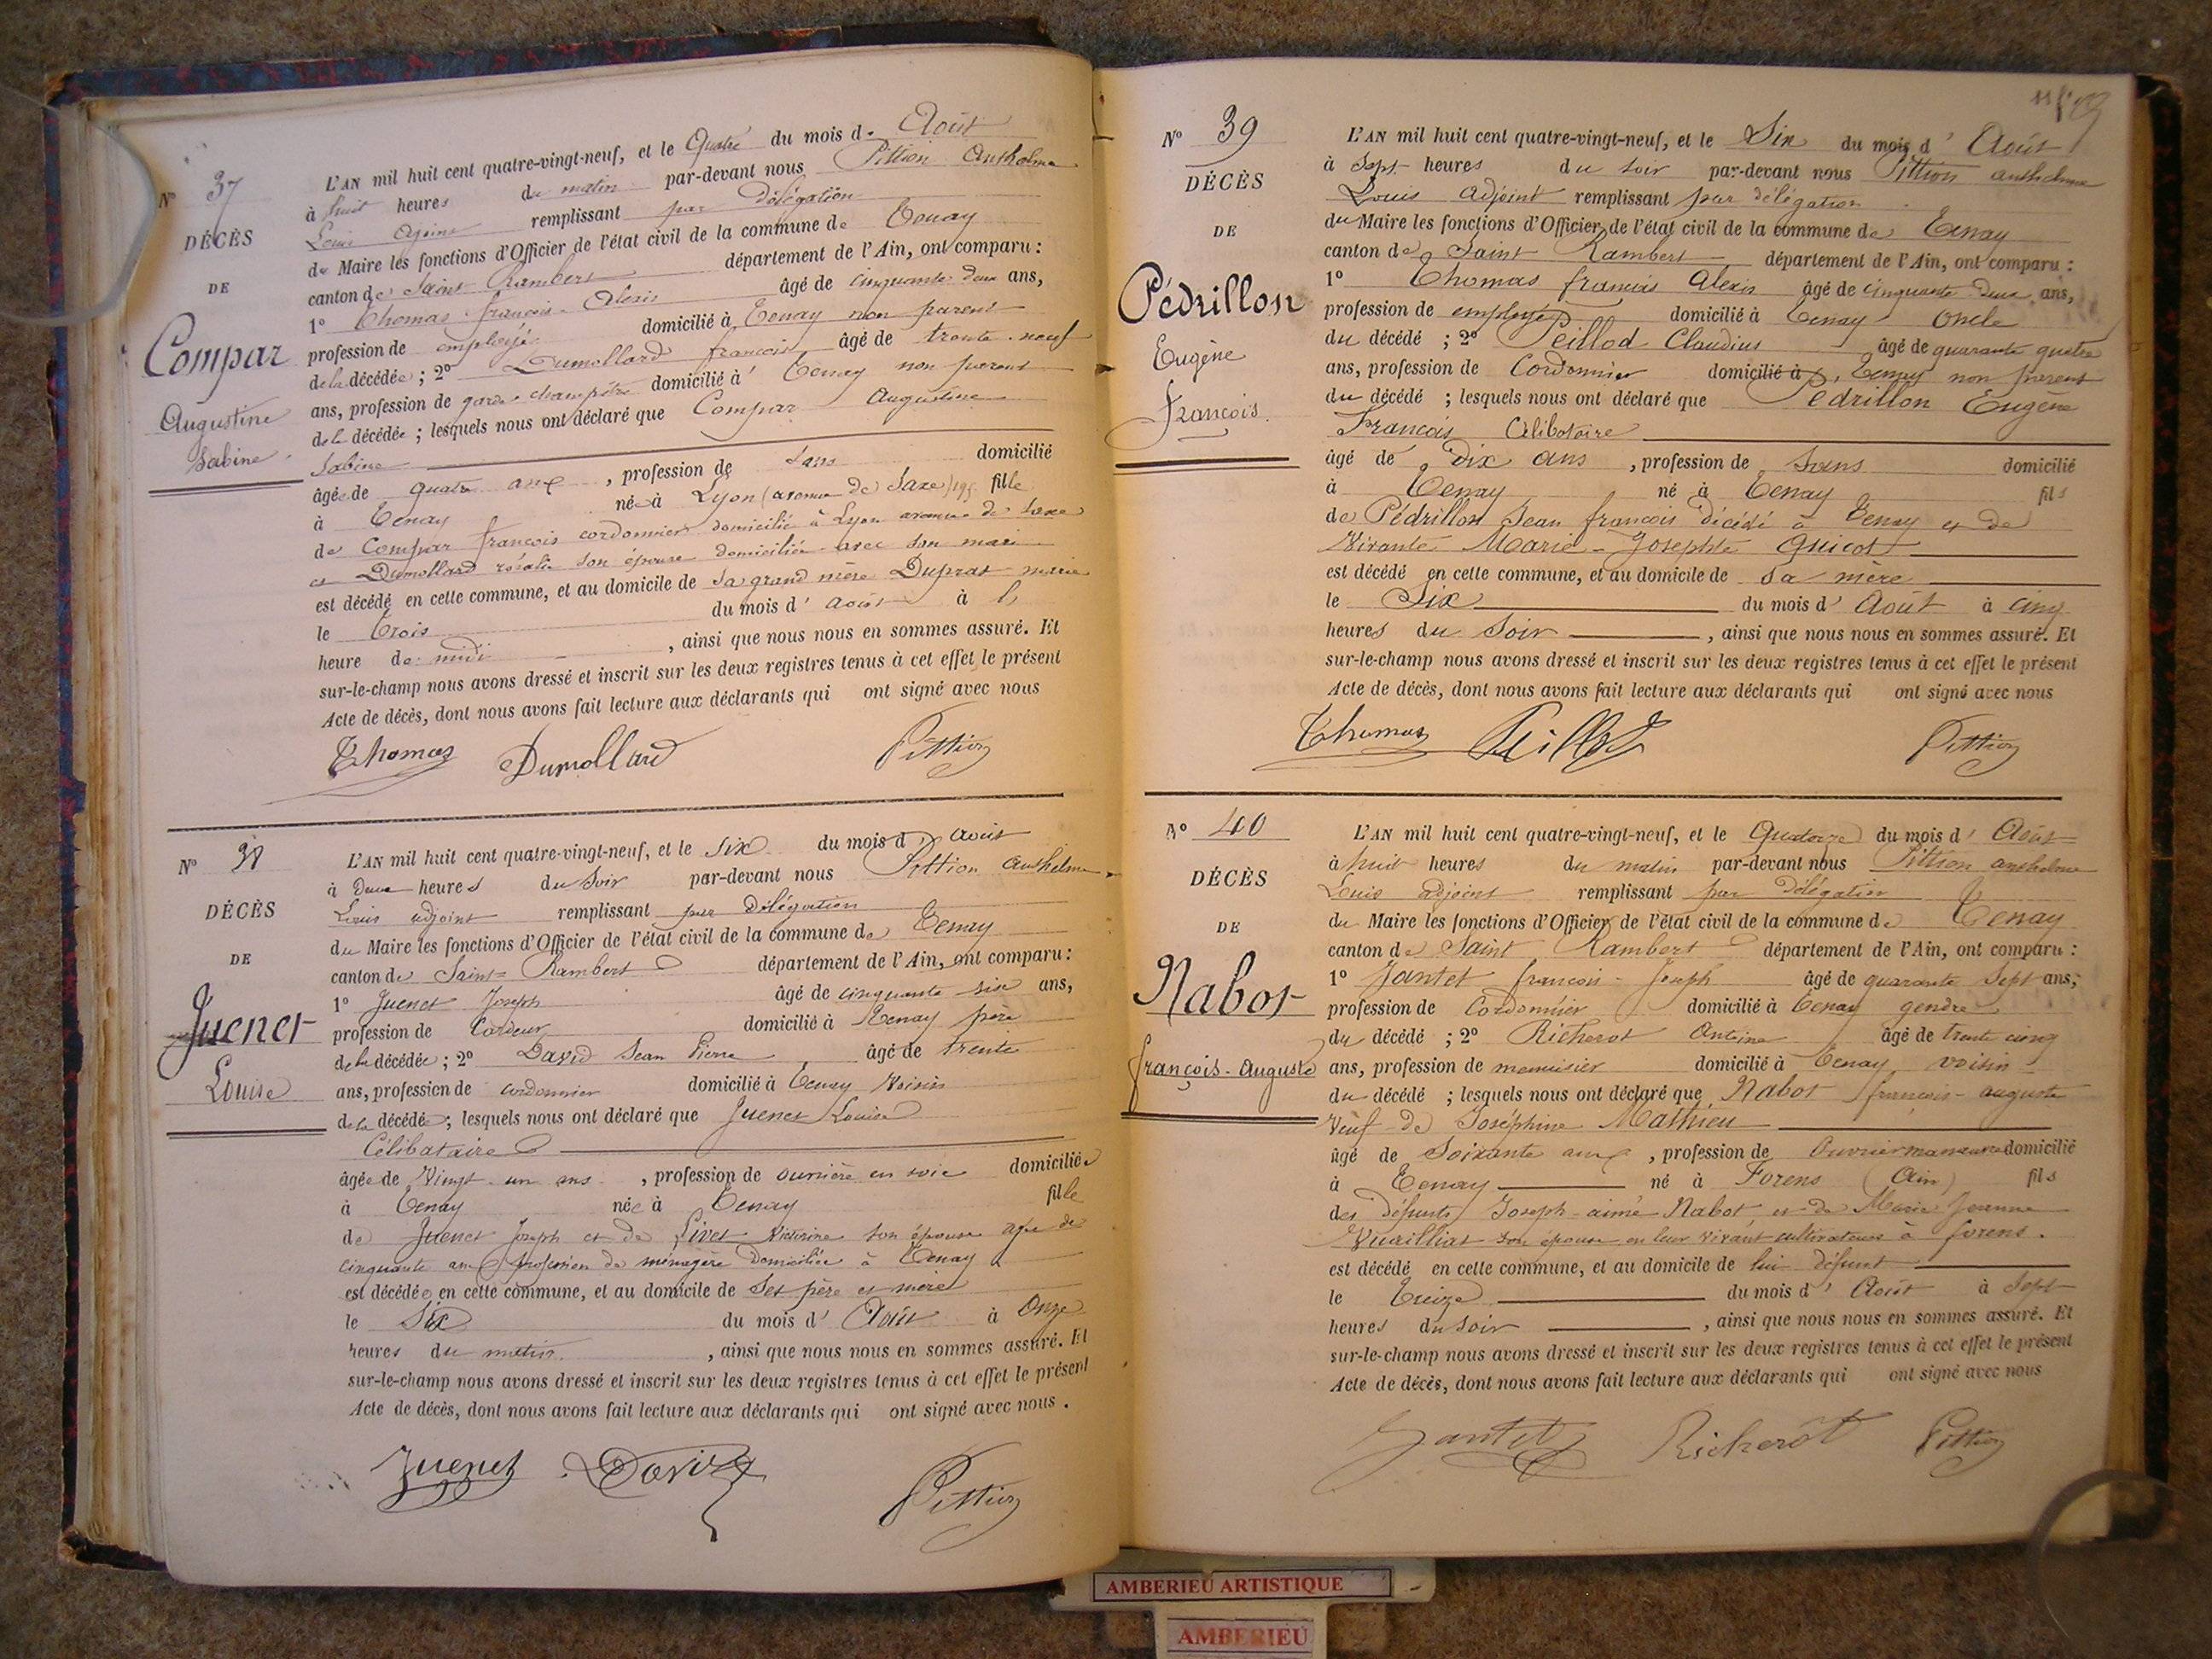 N° 37
DÉCÈS
DE
Compar
Augustine
Sabine
L'AN mil huit cent quatre-vingt-neuf, et le Quatre du mois d. Août
à huit heures du matin par-devant nous Pittion Anthelme
Louis adjoint remplissant par délégation
du Maire les fonctions d'Officier de l'état civil de la commune de Tenay
canton de Saint Rambert département de l'Ain, ont comparu :
1° Thomas françois Alexis âgé de cinquante deux ans,
profession de employé domicilié à Tenay non parent
de la décédée ; 2° Dumollard françois âgé de trente-neuf
ans, profession de garde-champêtre domicilié à Tenay non parent
de la décédée ; lesquels nous ont déclaré que Compar Augustine
Sabine
âgée de quatre ans, profession de sans domicilié
à Tenay née à Lyon (avenue de Saxe) 195 fille
de Compar françois cordonnier domicilié à Lyon avenue de Saxe
et Dumollard rosalie son épouse domiciliée avec son mari
est décédé en cette commune, et au domicile de sa grand mère Duprat marie
le Trois du mois d' août à
heure de midi, ainsi que nous nous en sommes assuré. Et
sur-le-champ nous avons dressé et inscrit sur les deux registres tenus à cet effet le présent
Acte de décès, dont nous avons fait lecture aux déclarants qui ont signé avec nous
Thomas Dumollard Pittion
N° 38
DÉCÈS
DE
Juenet
Louise
L'AN mil huit cent quatre-vingt-neuf, et le six du mois d' Août
à Deux heures du soir par-devant nous Pittion anthelme
Louis adjoint remplissant par délégation
du Maire les fonctions d'Officier de l'état civil de la commune de Tenay
canton de Saint-Rambert département de l'Ain, ont comparu :
1° Juenet Joseph âgé de cinquante six ans,
profession de Cardeur domicilié à Tenay père
de la décédée ; 2° David Jean Pierre âgé de trente
ans, profession de cordonnier domicilié à Tenay Voisin
de la décédée ; lesquels nous ont déclaré que Juenet Louise
Célibataire
âgée de Vingt-un ans, profession de ouvrière en soie domiciliée
à Tenay née à Tenay fille
de Juenet Joseph et de Livet Victorine son épouse âgée de
cinquante ans profession de ménagère Domiciliée à Tenay
est décédée en cette commune, et au domicile de ses père et mère
le Six du mois d' Août à Onze
heures du matin, ainsi que nous nous en sommes assuré. Et
sur-le-champ nous avons dressé et inscrit sur les deux registres tenus à cet effet le présent
Acte de décès, dont nous avons fait lecture aux déclarants qui ont signé avec nous.
Juenet David Pittion
N° 39
DÉCÈS
DE
Pédrillon
Eugène
François.
L'AN mil huit cent quatre-vingt-neuf, et le Six du mois d' Août
à sept heures du soir par-devant nous Pittion anthelme
Louis adjoint remplissant par délégation
du Maire les fonctions d'Officier de l'état civil de la commune de Tenay
canton de Saint Rambert département de l'Ain, ont comparu :
1° Thomas françois Alexis âgé de cinquante deux ans,
profession de employé domicilié à Tenay Oncle
du décédé ; 2° Peillod Claudius âgé de quarante quatre
ans, profession de Cordonnier domicilié à Tenay non parent
du décédé ; lesquels nous ont déclaré que Pédrillon Eugène
François Célibataire
âgé de Dix ans, profession de Sans domicilié
à Tenay né à Tenay fils
de Pédrillon Jean françois décédé à Tenay et de
Vivante Marie-Josephte Guicot
est décédé en cette commune, et au domicile de sa mère
le Six du mois d' Août à cinq
heures du Soir, ainsi que nous nous en sommes assuré. Et
sur-le-champ nous avons dressé et inscrit sur les deux registres tenus à cet effet le présent
Acte de décès, dont nous avons fait lecture aux déclarants qui ont signé avec nous
Thomas Peillod Pittion
N° 40
DÉCÈS
DE
Nabot
françois-Auguste
L'AN mil huit cent quatre-vingt-neuf, et le Quatorze du mois d' Août
à huit heures du matin par-devant nous Pittion anthelme
Louis adjoint remplissant par délégation
du Maire les fonctions d'Officier de l'état civil de la commune de Tenay
canton de Saint Rambert département de l'Ain, ont comparu :
1° Jantet françois-Joseph âgé de quarante sept ans,
profession de Cordonnier domicilié à Tenay gendre
du décédé ; 2° Richerot Antoine âgé de trente cinq
ans, profession de menuisier domicilié à Tenay voisin
du décédé ; lesquels nous ont déclaré que Nabot françois-auguste
Veuf de Joséphine Mathieu
âgé de Soixante ans, profession de Ouvrier manœuvre domicilié
à Tenay né à Forens (Ain) fils
des défunts Joseph-aimé Nabot et de Marie Jeanne
Vuailliat son épouse en leur vivant cultivateurs à forens.
est décédé en cette commune, et au domicile de lui défunt
le Treize du mois d' Août à Sept
heures du soir, ainsi que nous nous en sommes assuré. Et
sur-le-champ nous avons dressé et inscrit sur les deux registres tenus à cet effet le présent
Acte de décès, dont nous avons fait lecture aux déclarants qui ont signé avec nous
Jantet Richerot Pittion
AMBERIEU ARTISTIQUE
AMBERIEU